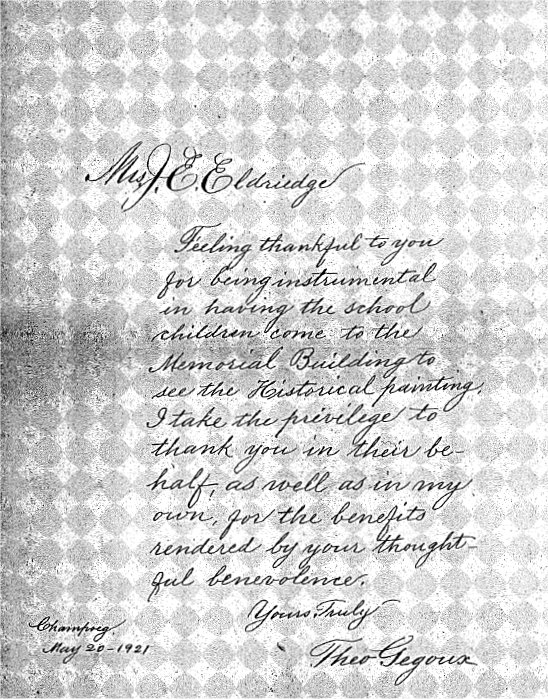 Mrs J. E. Eldriedge
Feeling thankful to you
for being instrumental
in having the school
children come to the
Memorial Building to
see the Historical painting.
I take the privilege to
thank you in their be-
half, as well as in my
own, for the benefits
rendered by your thought-
ful benevolence.
Yours Truly
Theo Gegoux
Champoeg.
May 20-1921